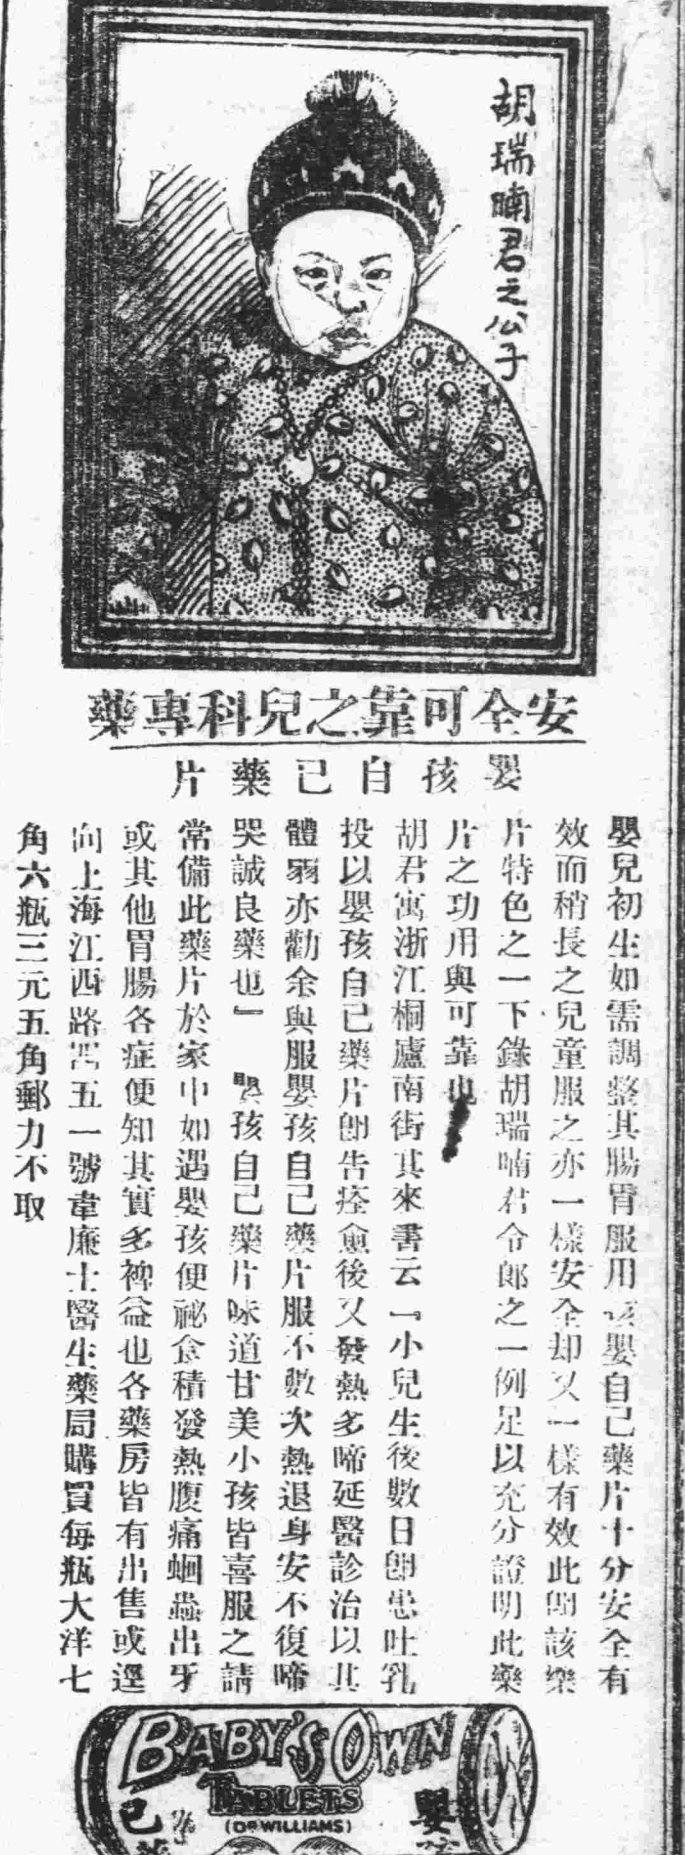 胡瑞喃君之公子
安全可靠之兒科專藥
嬰孩自己藥片
嬰兒初生如需調整其腸胃服用嬰自己藥片十分安全有
效而稍長之兒童服之亦一樣安全却又一樣有效此卽該藥
片特色之一下錄胡瑞喃君令郎之一例足以充分證明此藥
片之功用與可靠也
胡君寓浙江桐廬南街其來書云『小兒生後數日卽患吐乳
投以嬰孩自己藥片卽告痊愈後又發熱多啼延醫診治以其
體弱亦勸余與服嬰孩自己藥片服不數次熱退身安不復啼
哭誠良藥也』 嬰孩自己藥片味道甘美小孩皆喜服之請
常備此藥片於家中如遇嬰孩便祕食積發熱腹痛蛔蟲出牙
或其他胃腸各症便知其實多裨益也各藥房皆有出售或逕
向上海江西路四五一號韋廉士醫生藥局購買每瓶大洋七
角六瓶三元五角郵力不取
BABY'S OWN
TABLETS
(DR WILLIAMS)
嬰
己